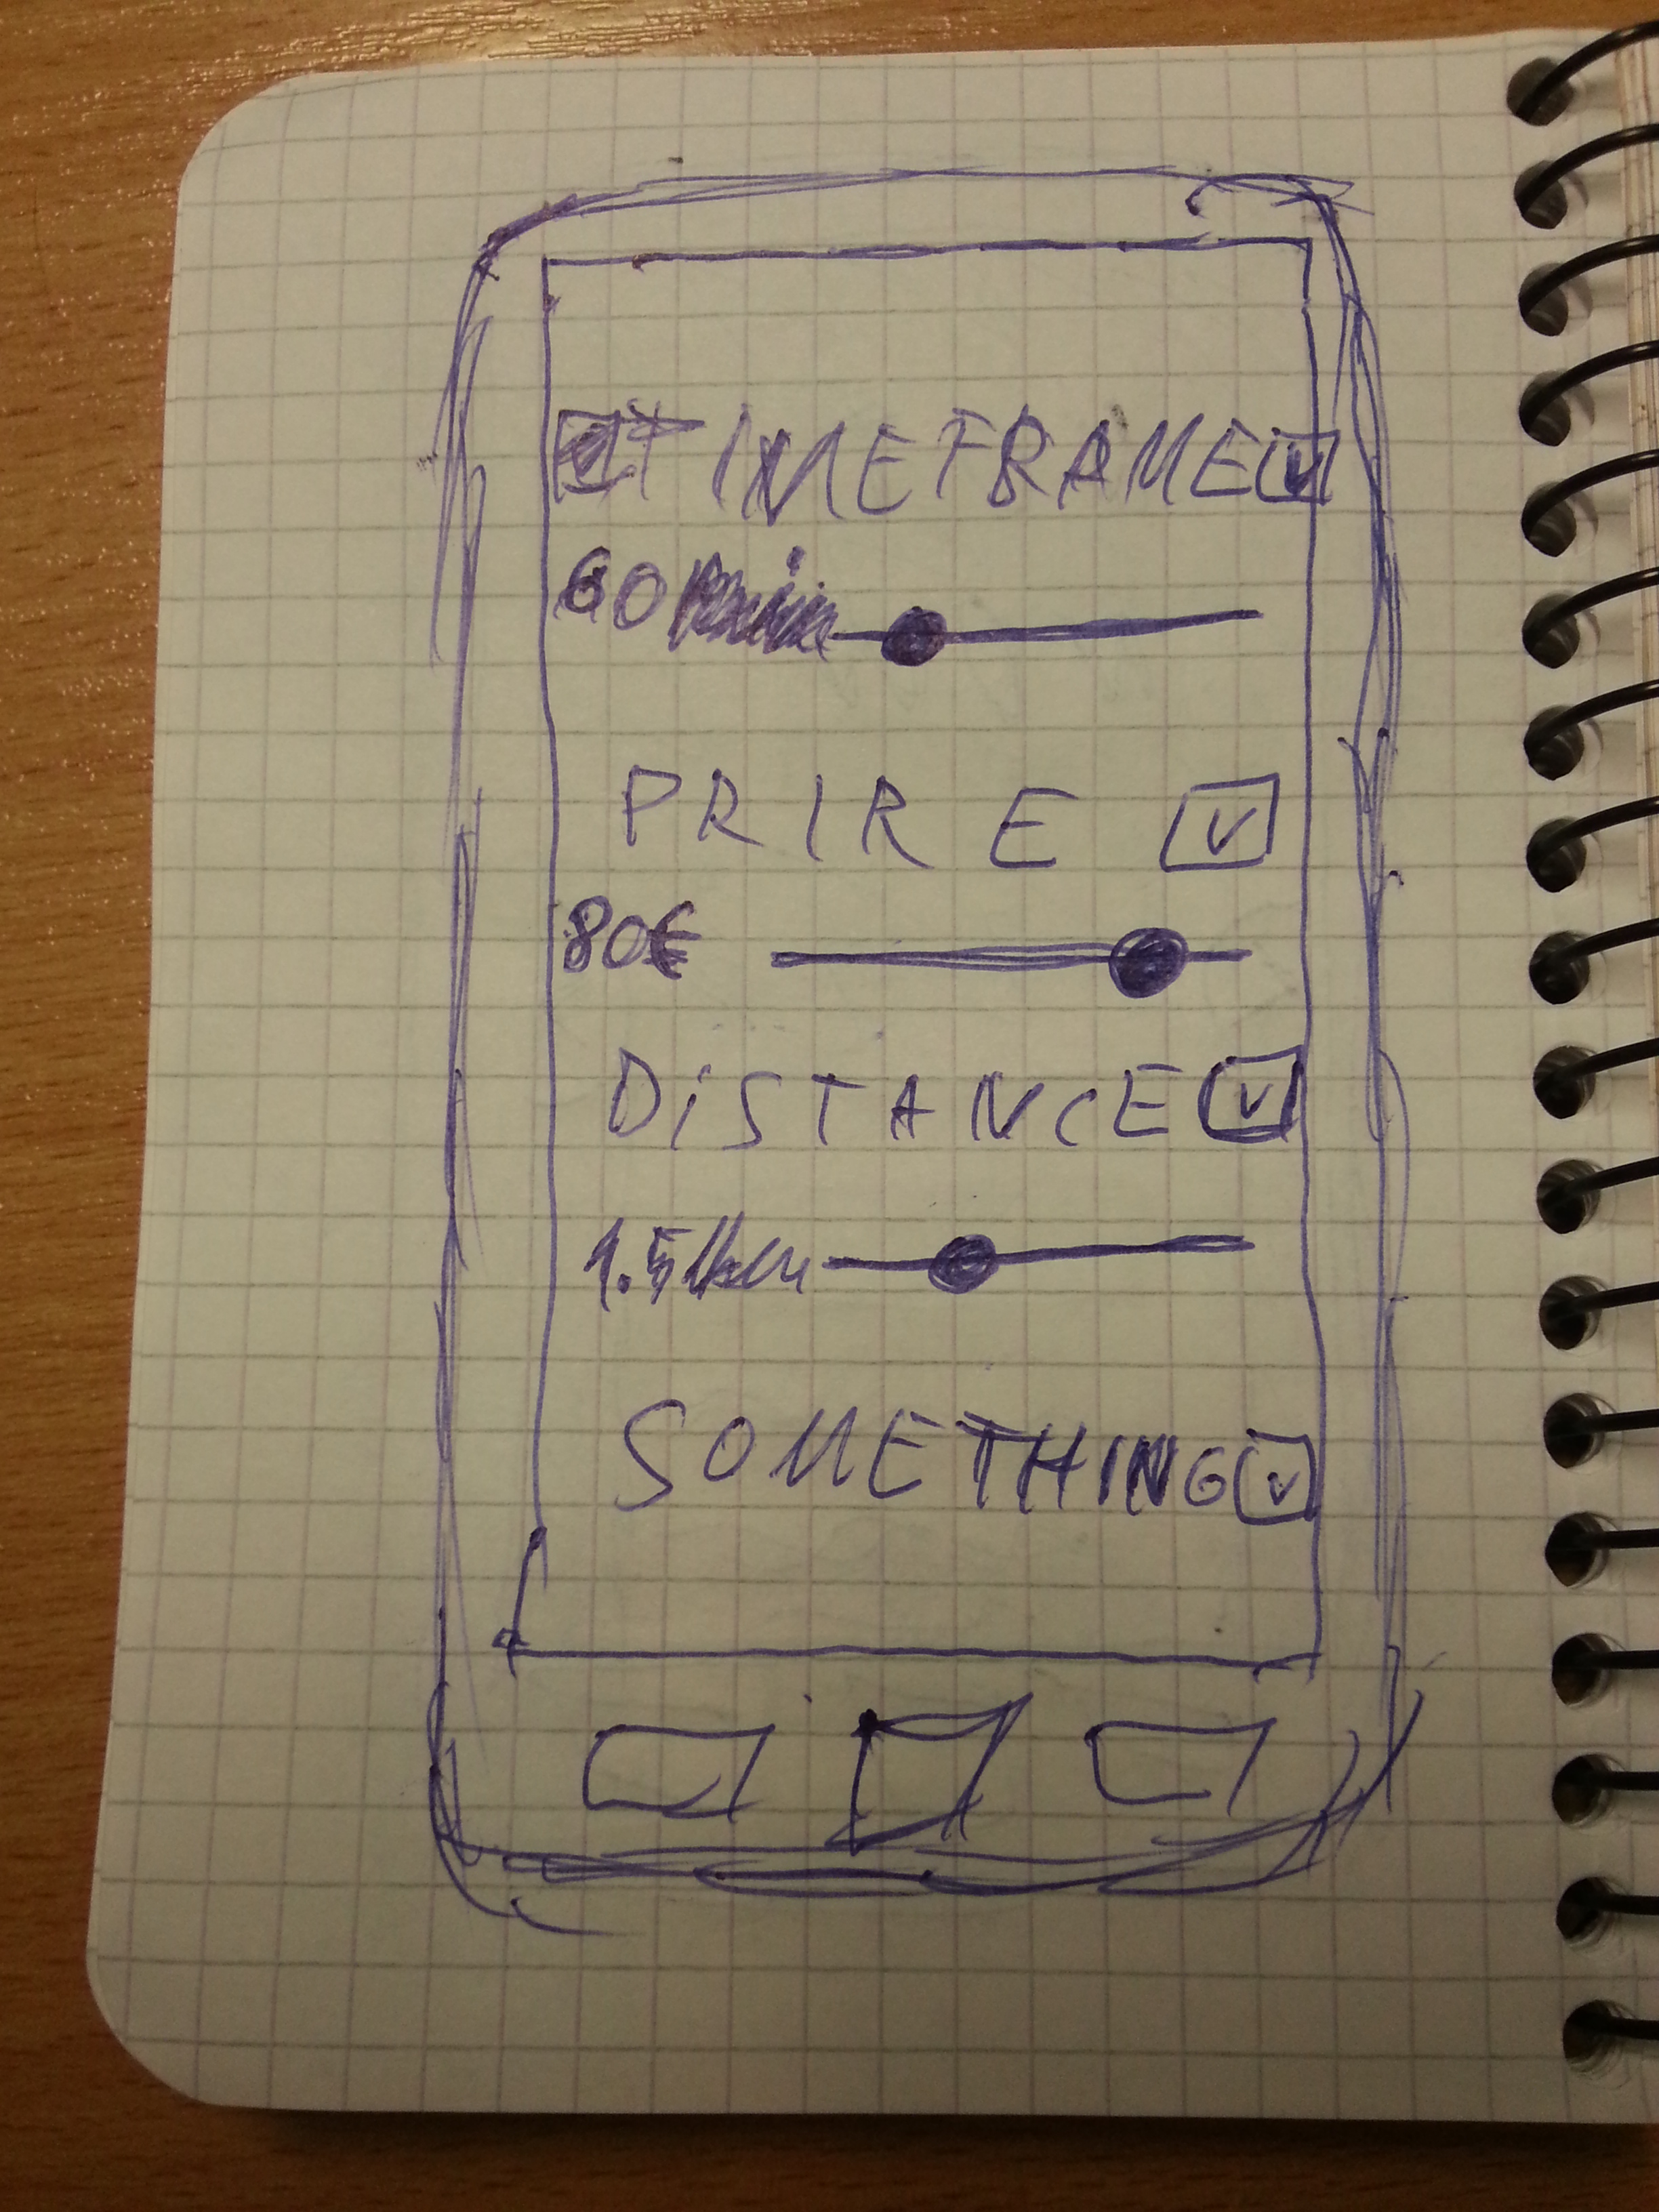 TIMEFRAME
60 min
PRIRE
80€
DiSTANCE
1.5 km
SOMETHING